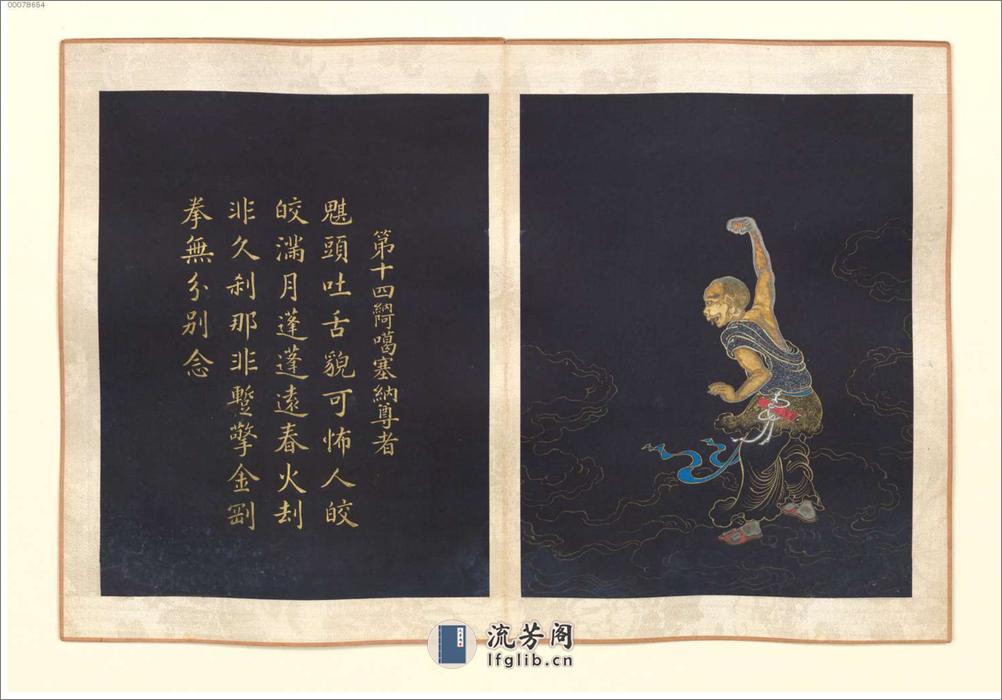 00078654
第十四𬘬噶塞納尊者
魌頭吐舌貌可怖人皎
皎滿月蓬蓬遠春火刦
非久刹那非蹔擎金剛
拳無分别念
流芳阁
lfglib.cn